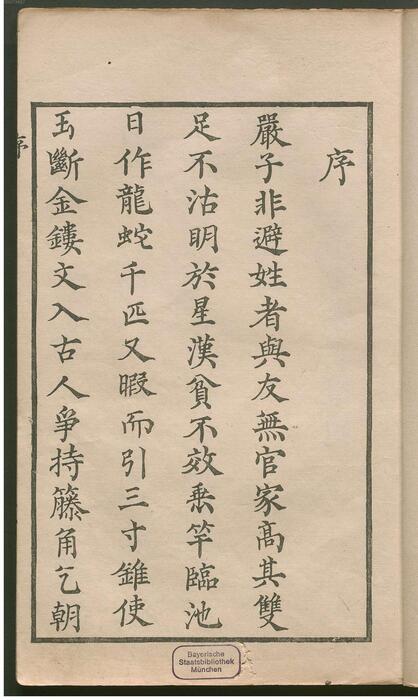 序
嚴子非避姓者與友無官家高其雙
足不沽明於星漢貧不效乗竿臨池
日作龍蛇千匹又暇而引三寸錐使
玉斷金鏤文入古人爭持籐角乞朝
序
Bayerische
Staatsbibliothek
München